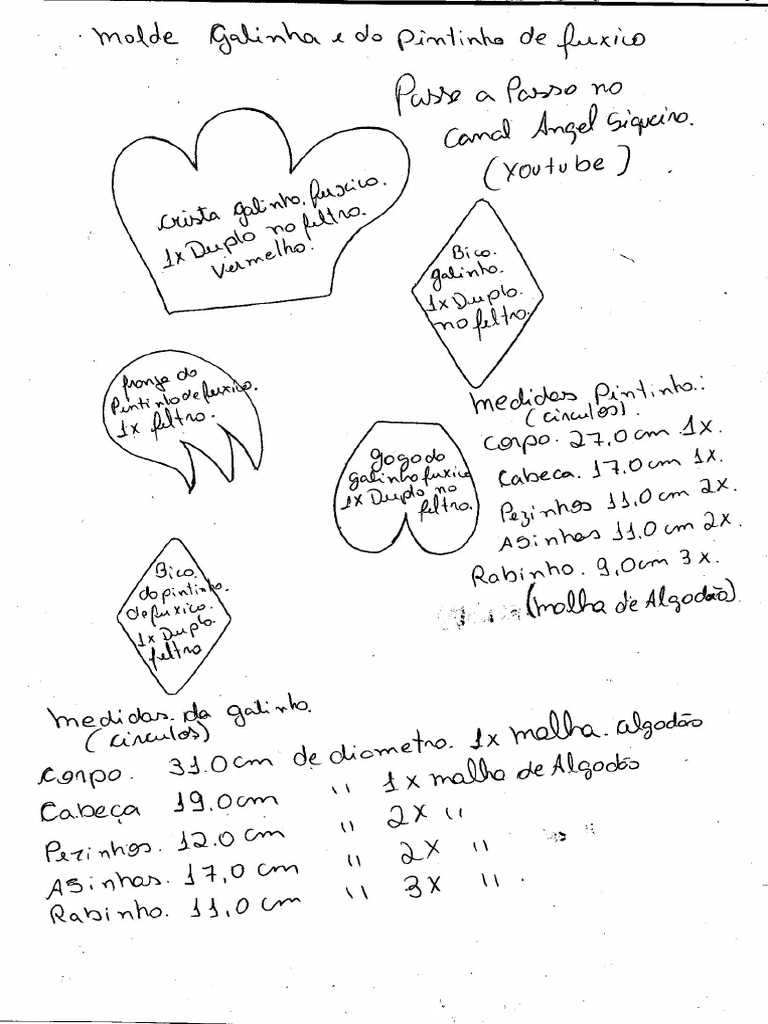 Molde Galinha e do Pintinho de fuxico
Passo a Passo no
Canal Angel Siqueira.
(Youtube)
Crista galinha fuxico.
1x Duplo no feltro.
Vermelho.
Bico.
galinha.
1x Duplo.
no feltro.
franja do
Pintinho de fuxico.
1x feltro.
gogo do
galinha fuxico
1x Duplo no
feltro.
Medidas Pintinho:
(circulos).
Corpo. 27,0cm 1x.
Cabeca. 17,0cm 1x.
Pezinhos 11,0cm 2x.
Asinhas 11,0cm 2x.
Rabinho. 9,0cm 3x.
(Malha de Algodão)
Bico.
do pintinho.
de fuxico.
1x Duplo
feltro
Medidas da galinha.
(circulos)
Corpo. 31.0cm de diametro. 1x malha. algodão
Cabeça 19.0cm " 1x malha de Algodão
Pezinhos. 12.0cm " 2x "
Asinhas. 17,0cm " 2x "
Rabinho. 11,0cm " 3x ".